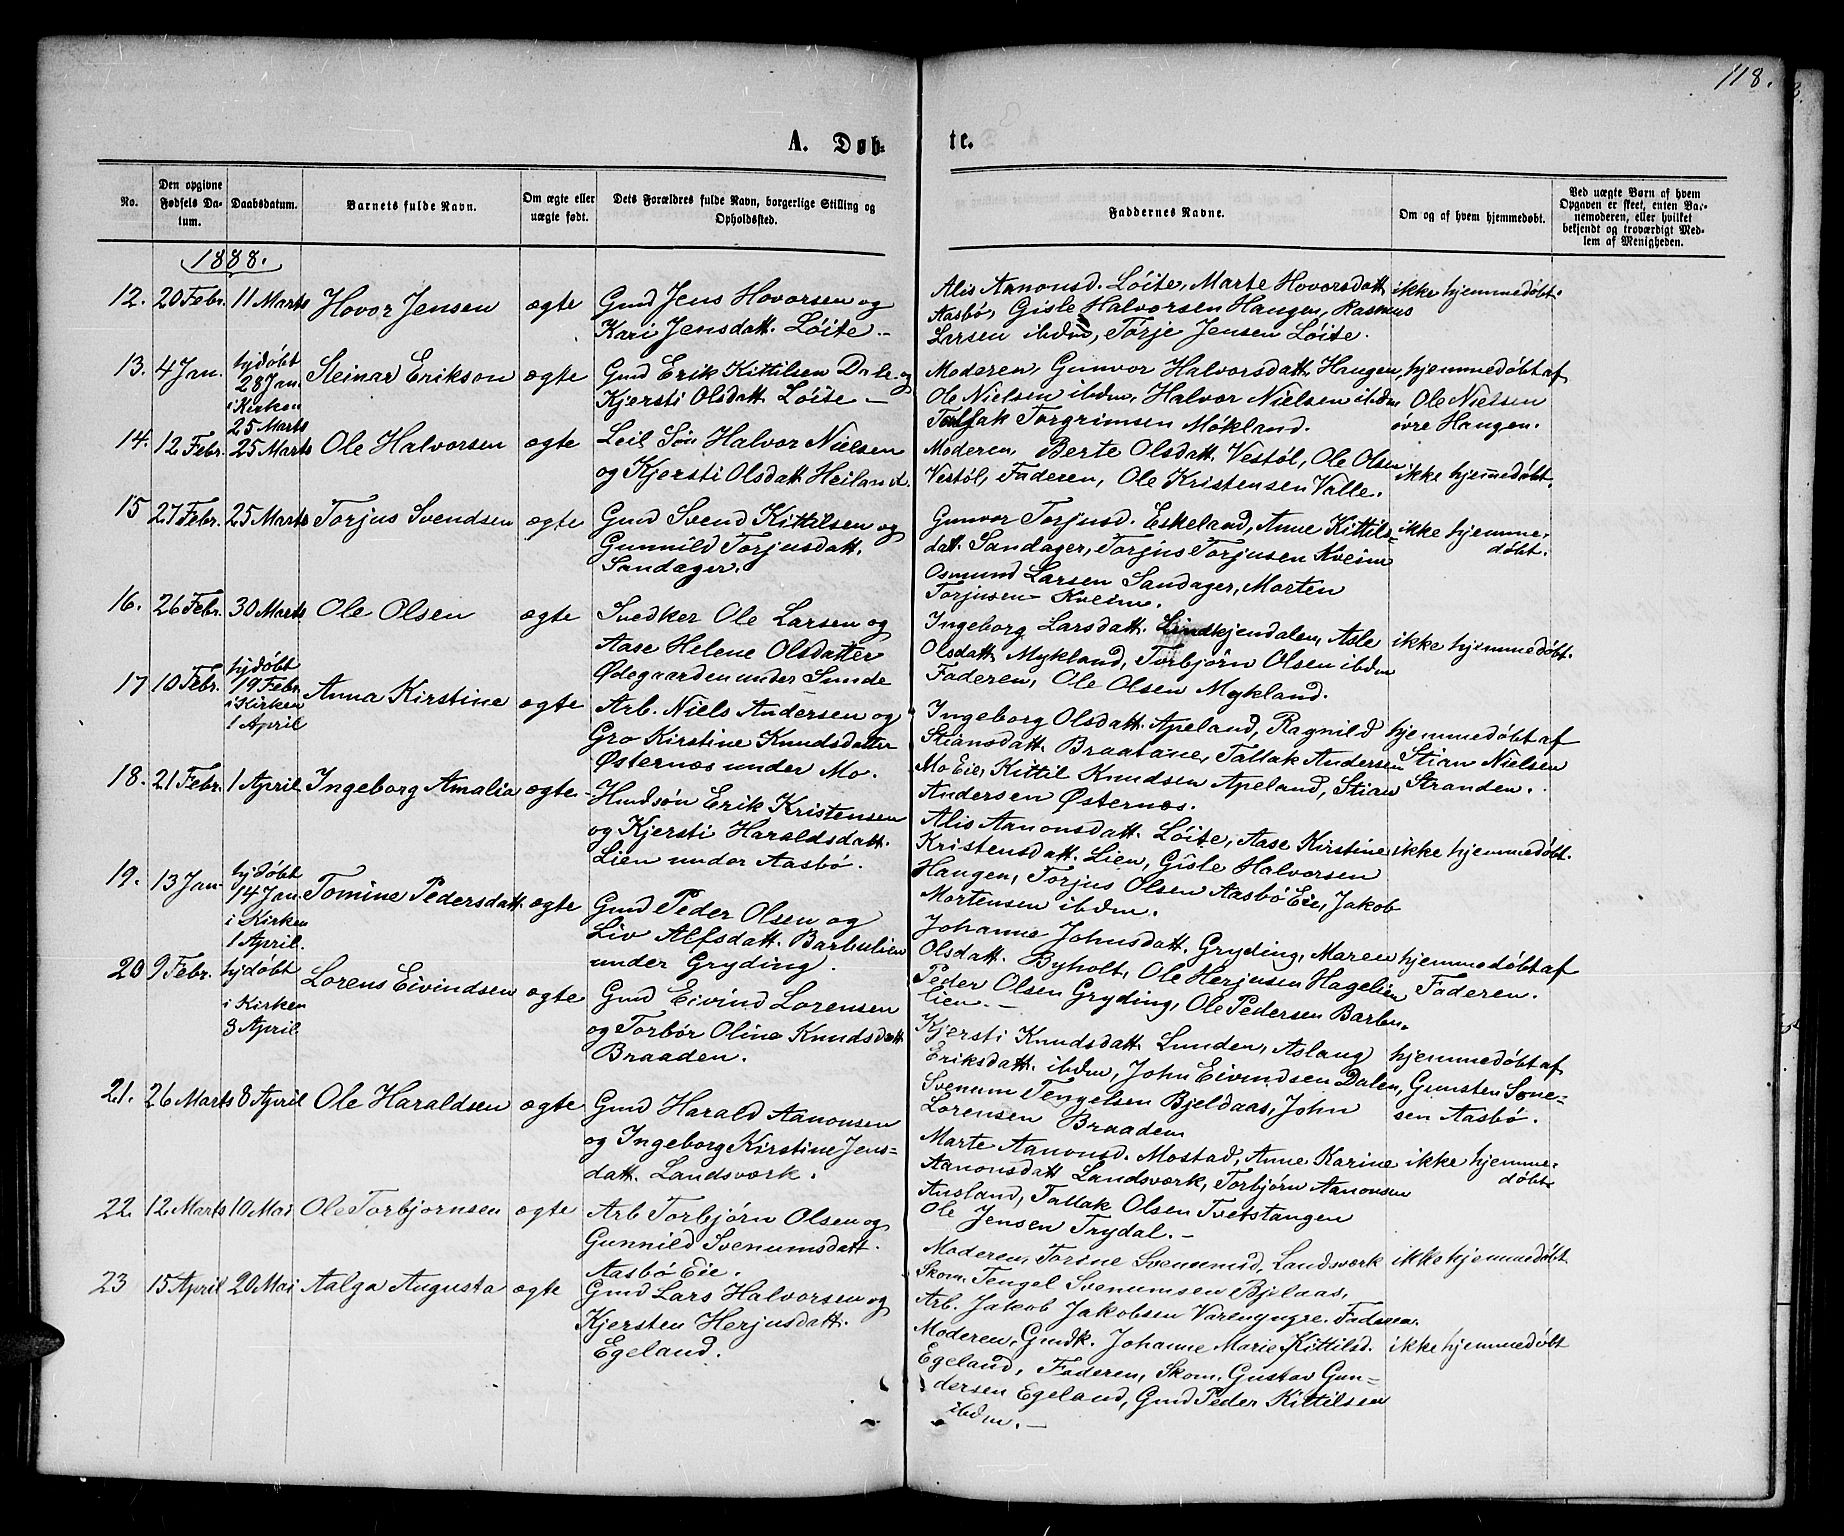 118.
A. Døbte.
No.
Den opgivne Fødsels Datum.
Daabsdatum.
Barnets fulde Navn.
Om ægte eller uægte født.
Dets Forældres fulde Navn, borgerlige Stilling og Opholdsted.
Faddernes Navne.
Om og af hvem hjemmedøbt.
Ved uægte Børn af hvem Opgaven er skeet, enten Barnemoderen, eller hvilket bekjendt og troværdigt Medlem af Menigheden.
1888.
12. 20 Febr. 11 Marts Hovor Jensen ægte
Gmd Jens Hovorsen og
Kari Jensdatt. Löite –
Alis Aanonsd. Löite, Marte Hovorsdatt
Aasbö, Gisle Halvorsen Haugen, Rasmus
Larsen ibdm, Törje Jensen Löite.
ikke hjemmedöbt.
13. 4 Jan. hjdöbt
28 Jan.
i Kirken
25 Marts
Steinar Erikson ægte
Gmd Erik Kittilsen Dale og
Kjersti Olsdatt. Löite –
Moderen, Gunvor Halvorsdatt. Haugen,
Ole Nielsen ibdm, Halvor Nielsen ibdm
Torgrimsen Mökland.
hjemmedöbt af
Ole Nielsen
övre Haugen.
14. 12 Febr. 25 Marts Ole Halvorsen ægte
Leil. Sön Halvor Nielsen
og Kjersti Olsdatt Heiland.
Moderen, Berte Olsdatt. Vestöl, Ole Olsen
Vestöl, Faderen, Ole Kristensen Valle.
ikke hjemmedöbt.
15 27 Febr. 25 Marts Torjus Svendsen ægte
Gmd Svend Kittilsen og
Gunnild Torjusdatt.
Sandager.
Gunvor Torjusd. Eskeland, Anne Kittils-
datt. Sandager, Torjus Torjusen Kveim
Osmund Larsen Sandager, Morten
Torjusen Kveim.
ikke hjemme-
döbt.
16. 26 Febr. 30 Marts Ole Olsen ægte
Svedker Ole Larsen og
Aase Helene Olsdatter
Ödegaarden under Sunde
Ingeborg Larsdatt. Lindkjendalen, Asle
Olsdatt. Mykland, Torbjörn Olsen ibdm
Faderen, Ole Olsen Mykland.
ikke hjemmedöbt.
17 10 Febr. hjdöbt
19 Febr
i Kirken
1 April
Anna Kirstine ægte
Arb. Niels Andersen og
Gro Kirstine Knudsdatter
Østernæs under Mo.
Ingeborg Olsdatt. Apeland, Ragnild
Stiansdatt. Braatane, Tallak Andersen
Mo Eie, Kittil Knudsen Apeland, Stian
Andersen Østernæs.
hjemmedöbt af
Stian Nielsen
Stranden.
18. 21 Febr. 1 April Ingeborg Amalia ægte
Husön Erik Kristensen
og Kjersti Haraldsdatt.
Lien under Aasbö.
Alis Aanonsdatt. Löite, Aase Kirstine
Kristensdatt. Lien, Gisle Halvorsen
Haugen, Torjus Olsen Aasbö Eie, Jakob
Mortensen ibdm.
ikke hjemmedöbt.
19. 13 Jan hjdöbt
14 Jan.
i Kirken
1 April.
Tomine Pedersdatt. ægte
Gmd Peder Olsen og
Liv Alfsdatt. Barbulien
under Gryding.
Johanne Johnsdatt. Gryding, Maren
Olsdatt. Byholt, Ole Herjusen Hagelien
Peder Olsen Gryding, Ole Pedersen Barbu-
lien. –
hjemmedöbt af
Faderen.
20 9 Febr. hjdöbt
i Kirken
8 April
Lorens Eivindsen ægte
Gmd Eivind Lorensen
og Torbör Oline Knudsdatt
Braaden.
Kjersti Knudsdatt. Lunden, Aslaug
Eriksdatt. ibdm, John Eivindsen Dalen,
Svenum Tengelsen Bjeldaas, John
Lorensen Braaden
hjemmedöbt af
Gunsten Söne-
sen Aasbö.
21. 26 Marts 8 April Ole Haraldsen ægte
Gmd Harald Aanonsen
og Ingeborg Kirstine Jens-
datt. Landsværk.
Marte Aanonsd. Mostad, Anne Karine
Aanonsdatt Landsværk, Torbjörn Aanonsen
Ausland, Tallak Olsen Tvetstangen
Ole Jensen Trydal. –
ikke hjemme-
döbt.
22. 12 Marts 10 Mai Ole Torbjornsen ægte
Arb Torbjörn Olsen og
Gunnild Svenumsdatt.
Aasbö Eie.
Moderen, Torine Svenumsd, Landsværk
Skom. Tengel Svenumsen Bjelaas,
Arb. Jakob Jakobsen Varenyngre. Faderen.
ikke hjemmedöbt
23 15 April 20 Mai Aalga Augusta ægte
Gmd Lars Halvorsen og
Kjersten Herjusdatt.
Egeland.
Moderen, Gmdk. Johanne Marie Kittilsd.
Egeland, Faderen, Skom. Gustav Gun-
dersen Egeland, Gmd Peder Kittilsen
ibdm. –
ikke hjemmedöbt